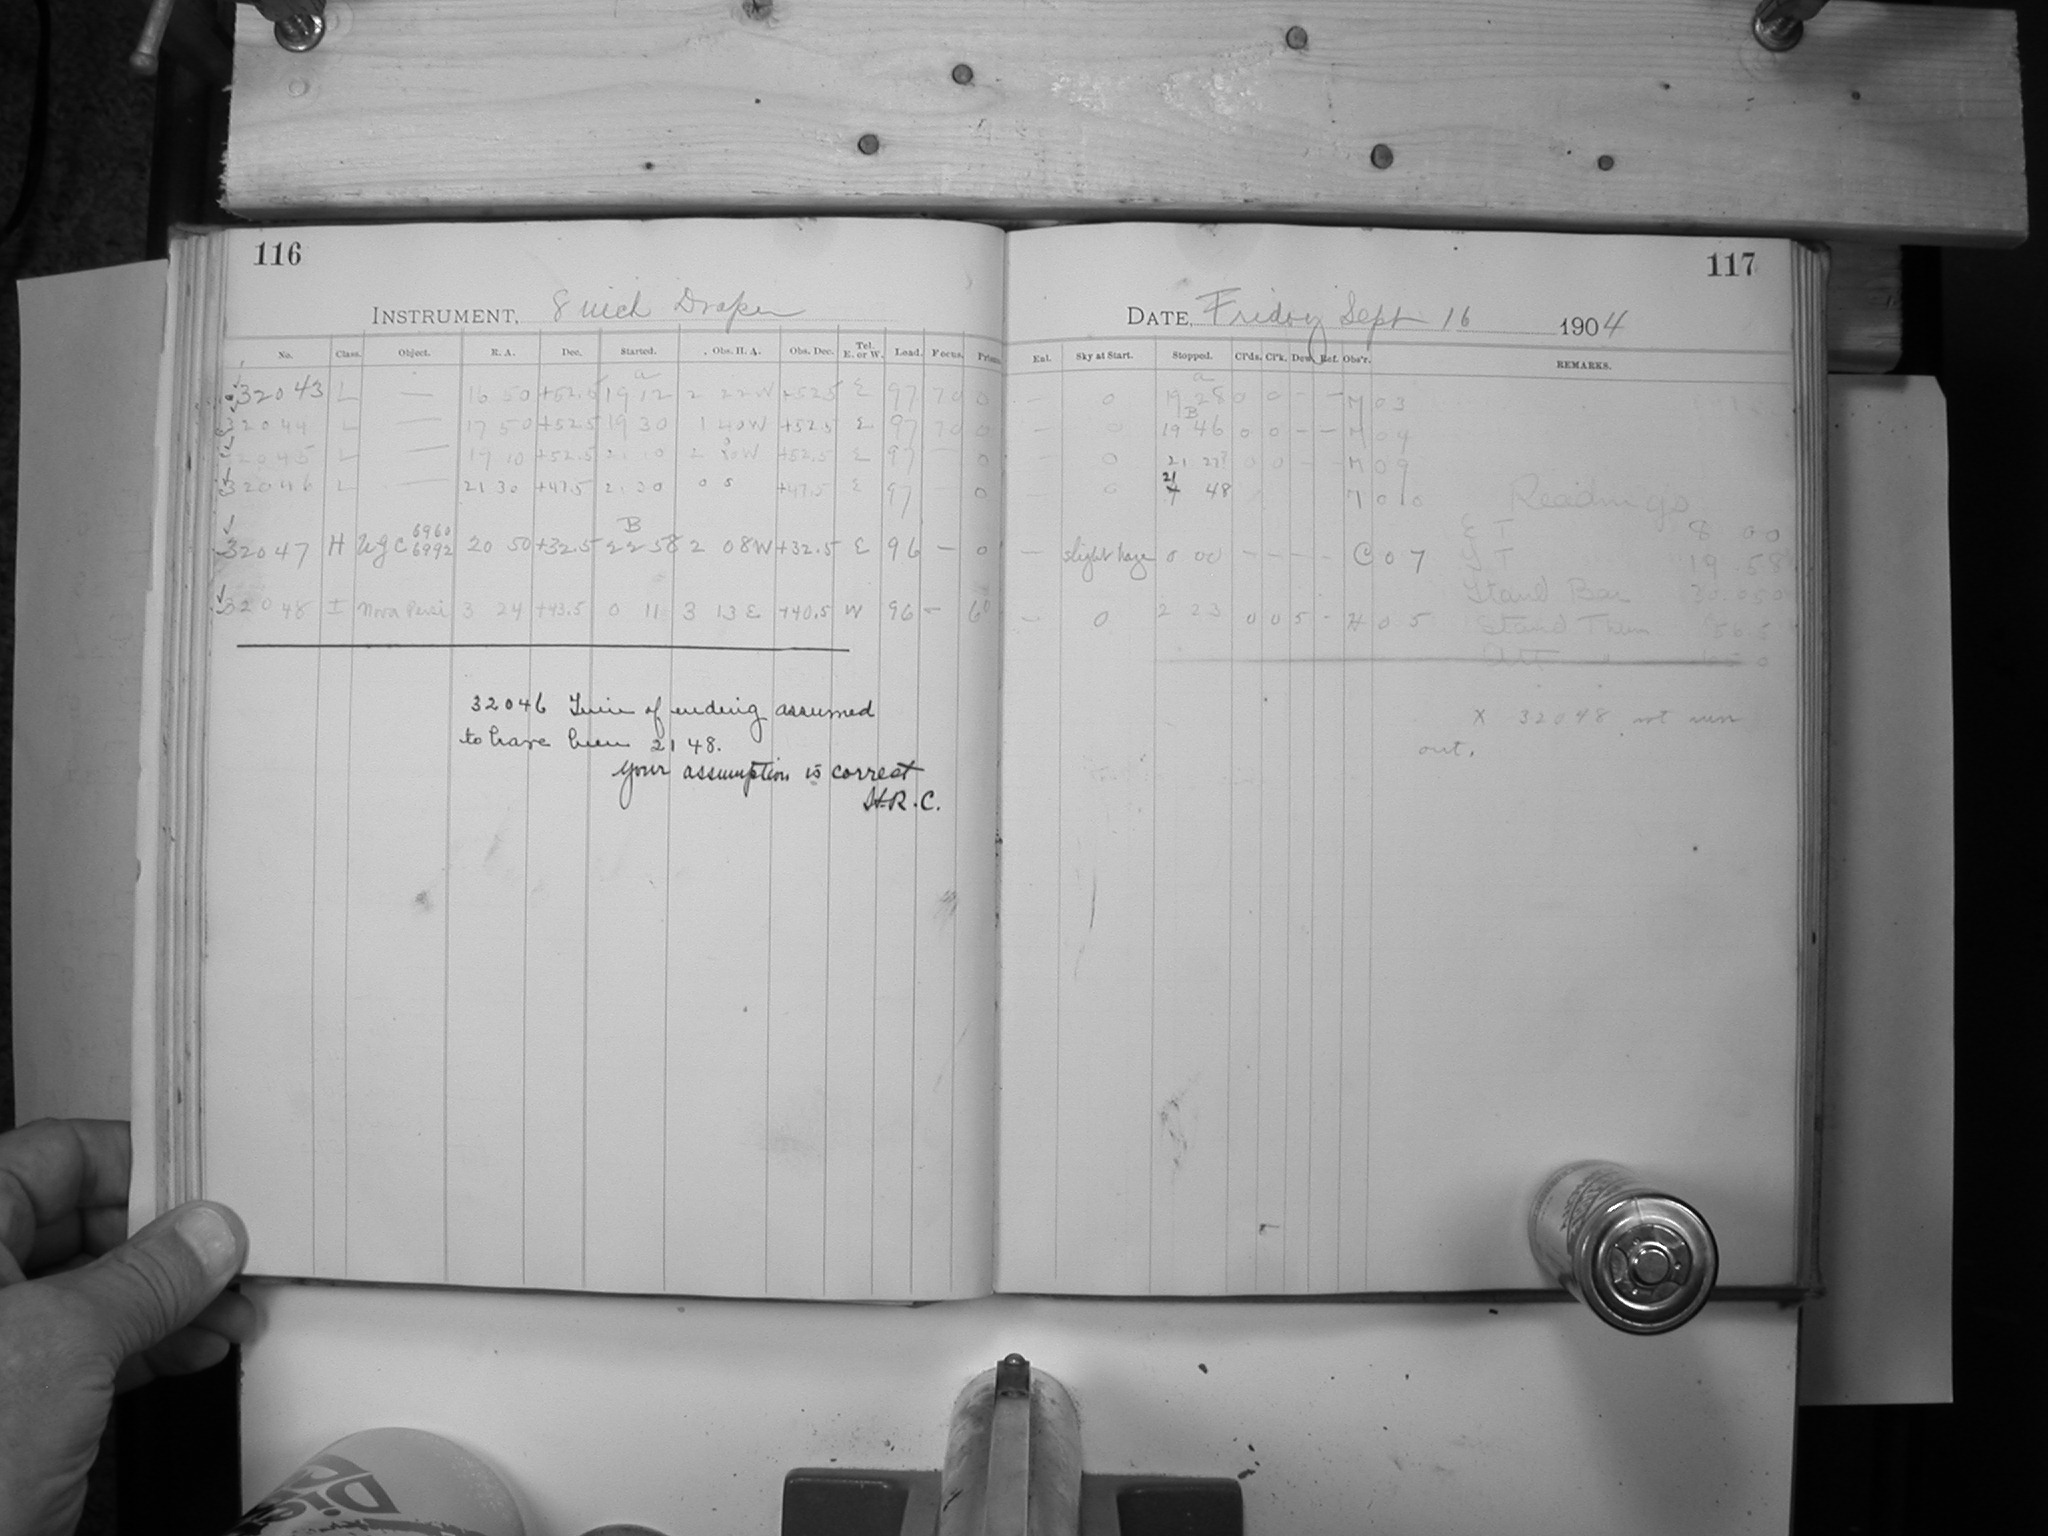 116
117
INSTRUMENT, 8 inch Draper
DATE, Friday Sept 16 1904
No. Class. Object. R. A. Dec. Started. Obs. H. A. Obs. Dec. Tel. E. or W. Load. Focus. Prism
Ext. Sky at Start. Stopped. Cl'ds. Cl'k. Dew. Ref. Obs'r. REMARKS.
32043 L — 16 50 +52.5 19 12 2 22 W +52.5 E 97 70 0 — 0 19 28 0 0 - - M 03
32044 L — 17 50 +52.5 19 30 1 40 W +52.5 E 97 70 0 — 0 19 46 0 0 - - M 04
32045 L — 17 10 +52.5 21 10 W +52.5 E 97 — 0 — 0 21 27 0 0 - - M 09
32046 L — 21 30 +47.5 21 30 0 5 +47.5 E 97 — 0 — 0 21 48
Readings
32047 H NGC 6960 6992 20 50 +32.5 22 58 2 08 W +32.5 E 96 — 0 — slight haze 0 00 - - - - C 07
E T 8 00
S T 19 58
Stand Bar 30.050
32048 I Nova Persei 3 24 +43.5 0 11 3 13 E +40.5 W 96 — — 0 2 23 0 0 5 - H 05
Stand Ther 56.5
Att
32046 Time of ending assumed
to have been 21 48.
Your assumption is correct
H.R.C.
X 32048 not run
out.
Diet